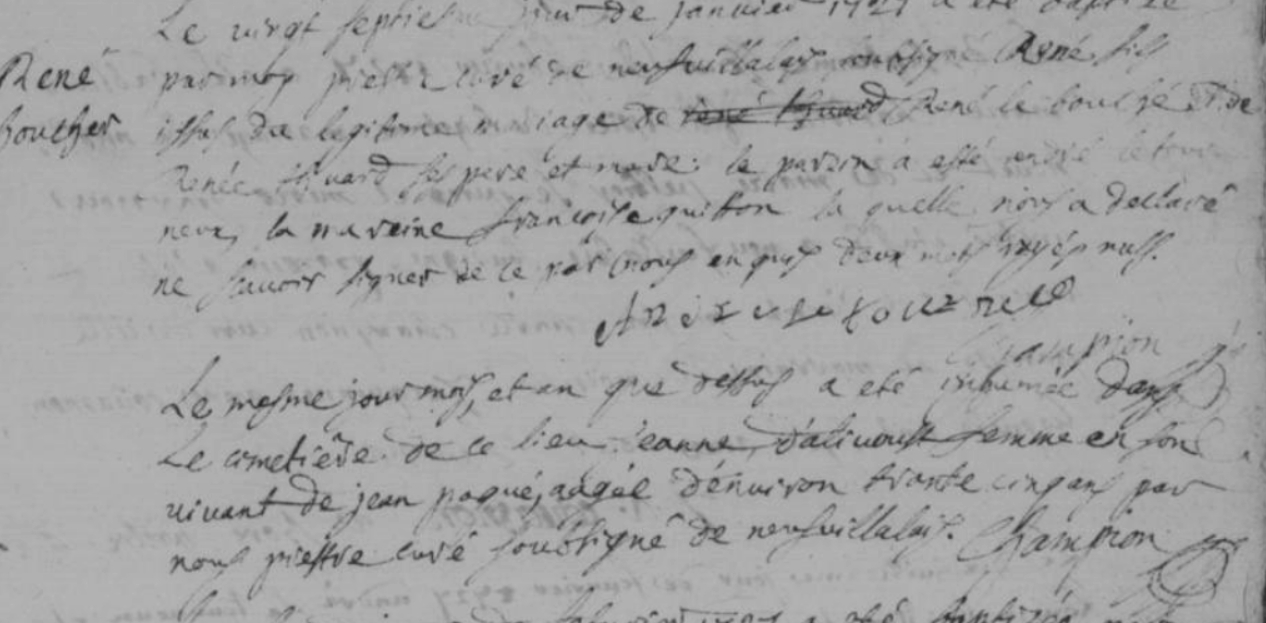 Le vingt septiesme jour de janvier 1727 a été baptizé
René
boucher
par moy prestre curé de neufvillalais soubsigné René fils
issus du legitime mariage de rené thuard René le bouché et de
Renée thuard ses pere et mere: le parein a esté andré letour
neux, la mareine françoise guitton la quelle nous a declaré
ne scavoir signer de ce par nous enquis deux mots rayés nuls.
Champion
Le mesme jour mois, et an que dessus a eté inhumée dans
Le cimetiere de ce lieu jeanne femme en son
vivant de jean paqué, aagée d'énuiron trante cinq ans par
nous prestre curé soubsigné de neufvillalais. Champion
a eté baptizée